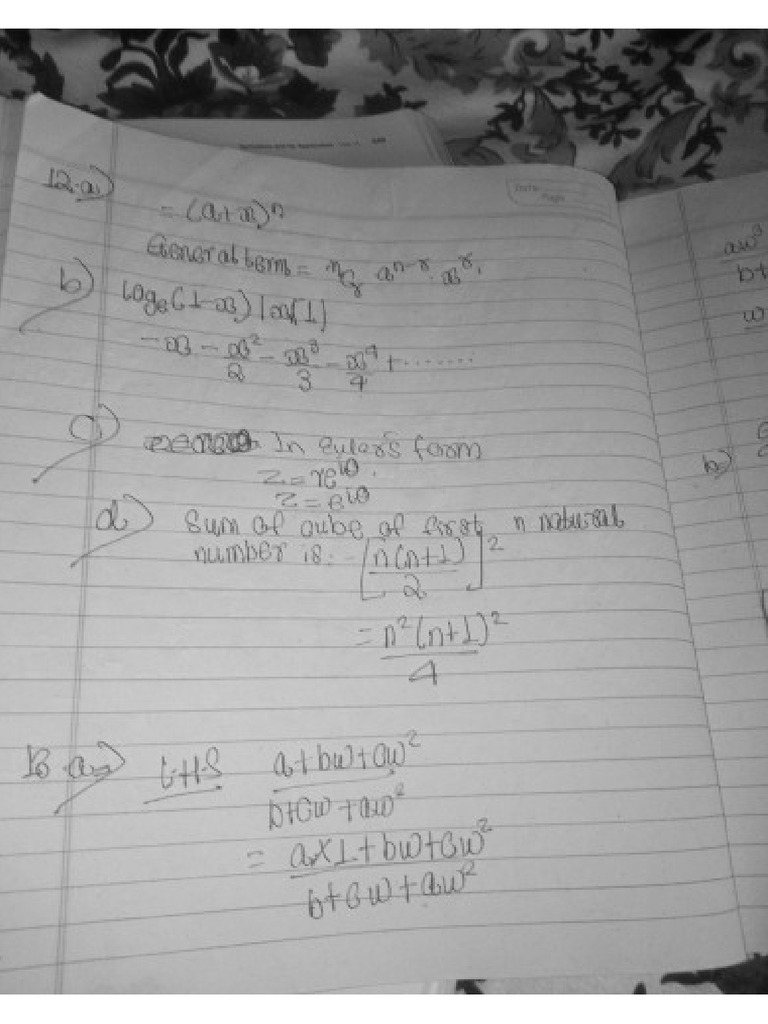 12.a)
= (a+x)ⁿ
General term = ⁿCᵣ aⁿ⁻ʳ. xʳ.
b) logₑ(1-x) |x|<1|
-x - x²/2 - x³/3 - x⁴/4 + .......
c) In Euler's form
z = re^iθ.
z = e^iθ
d) Sum of cube of first n natural
number is. [n(n+1)/2]²
= n²(n+1)²/4
13.a) LHS (a+bw+cw²)/(b+cw+aw²)
= (a×1+bw+cw²)/(b+cw+aw²)
aw³
b+
w
b)